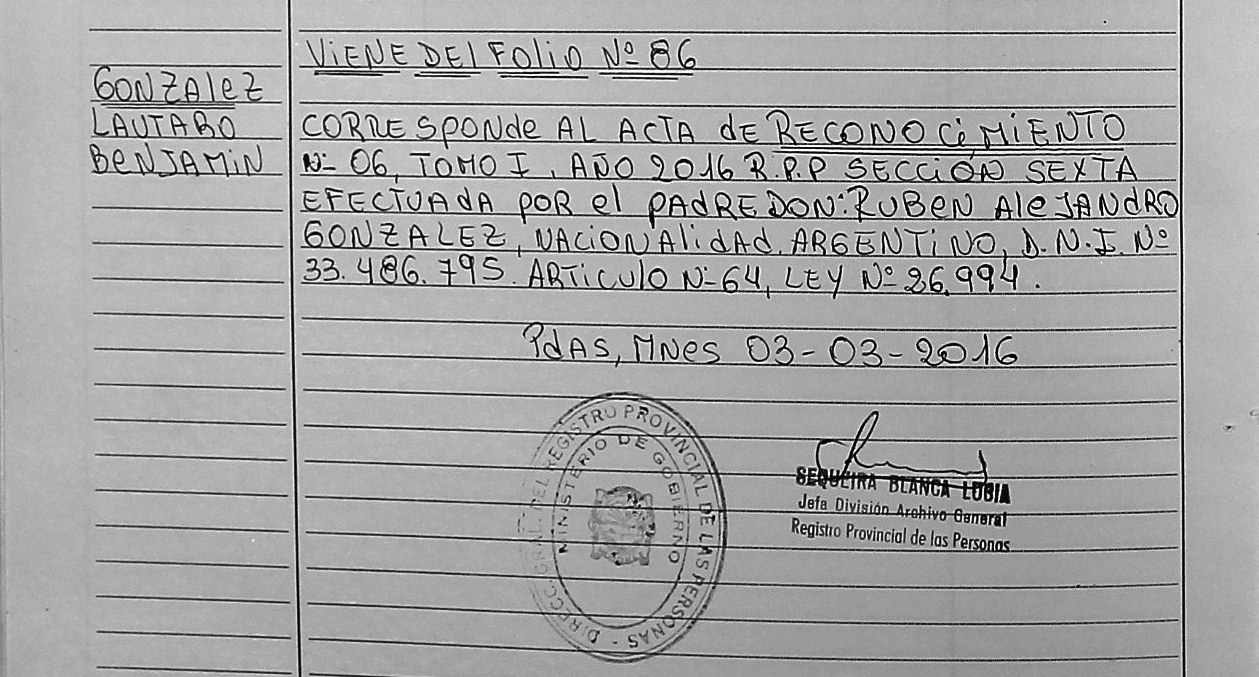 VIENE DEL FOLIO Nº 86
GONZALEZ
LAUTARO
BENJAMIN
CORRESPONDE AL ACTA DE RECONOCIMIENTO
Nº 06, TOMO I, AÑO 2016 R.P.P SECCIÓN SEXTA
EFECTUADA POR EL PADRE DON: RUBEN ALEJANDRO
GONZALEZ, NACIONALIDAD ARGENTINO, D.N.I. Nº
33.486.795. ARTICULO Nº 64, LEY Nº 26.994.
PDAS, MNES 03-03-2016
DIRECC. GRAL. DEL REGISTRO PROVINCIAL DE LAS PERSONAS -
MINISTERIO DE GOBIERNO
SEQUEIRA BLANCA LUBIA
Jefa División Archivo General
Registro Provincial de las Personas